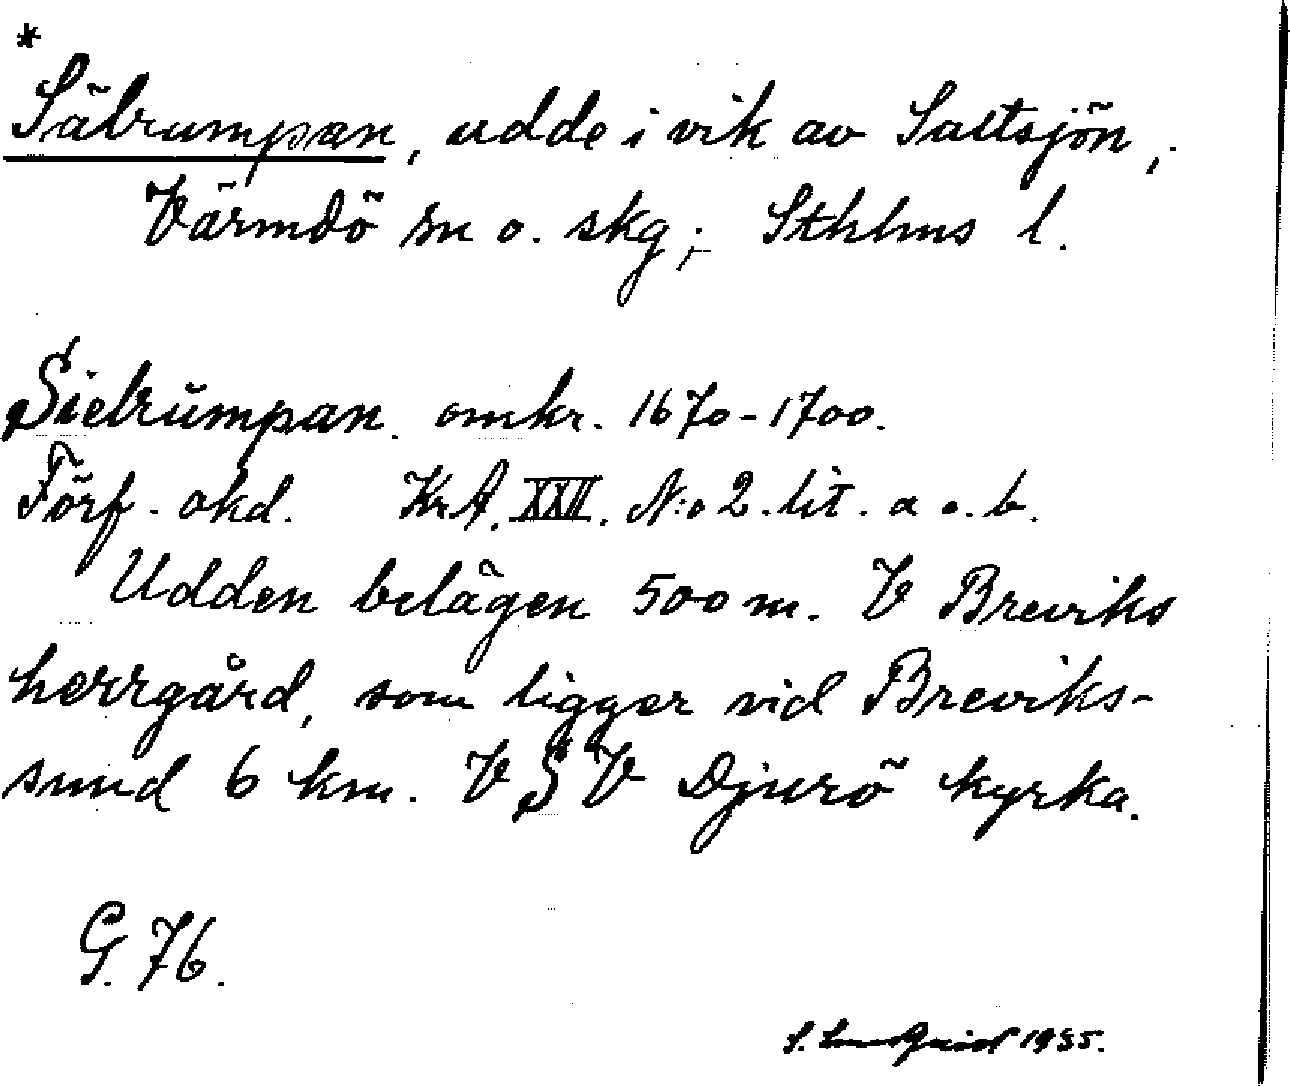 *
Sälrumpan, udde i vik av Saltsjön,
Värmdö sn o. skg; Sthlms l.
Sielrŭmpan. omkr. 1670-1700.
Förf. okd. Kr.A. XXII. N:o 2. lit. a o. b.
Udden belägen 500 m. V Breviks
herrgård, som ligger vid Breviks-
sund 6 km. VSV Djurö kyrka.
G. 76.
S. Lundquist 1935.